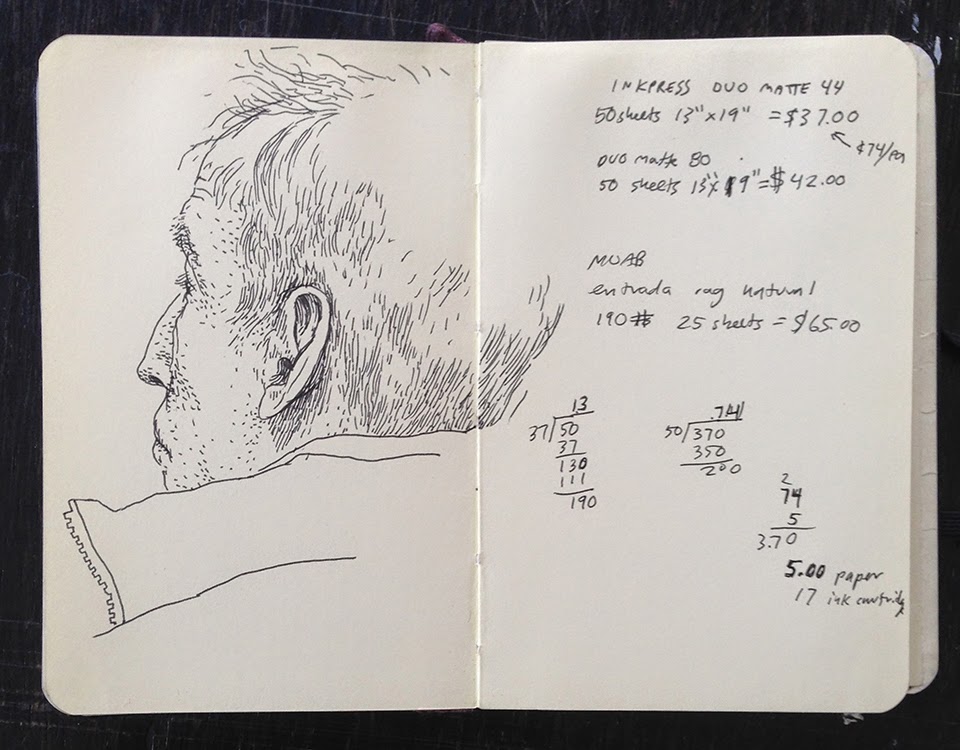 INKPRESS DUO MATTE 44
50 sheets 13"x19" = $37.00
DUO matte 80
50 sheets 13"x19" = $42.00
MOAB
entrada rag natural
190# 25 sheets = $65.00
13
37)50
37
130
111
190
.74
50)370
350
200
2
74
5
3.70
5.00 paper
17 ink cartridg